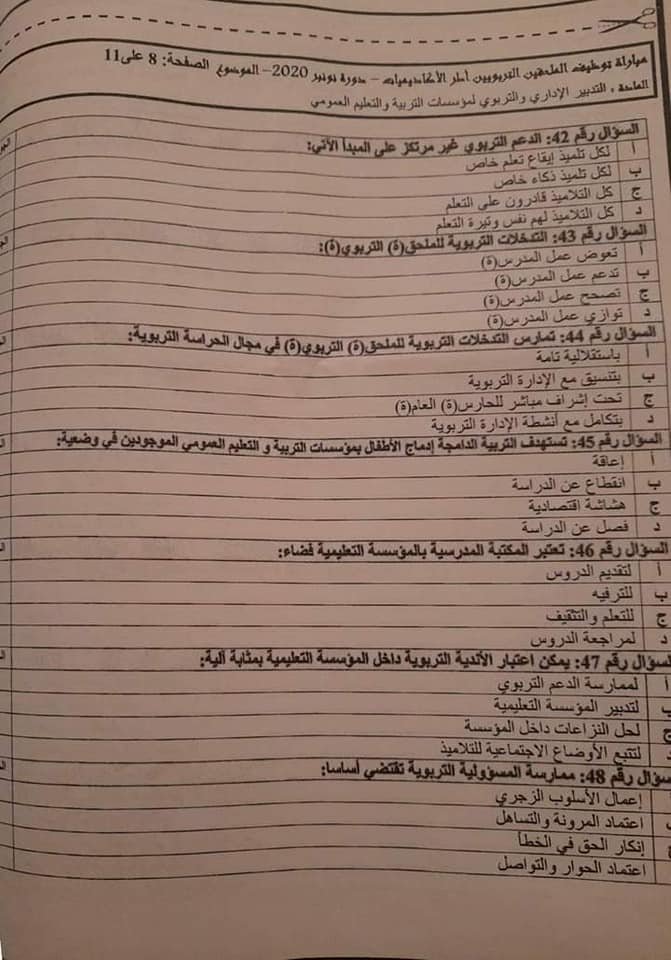 مباراة توظيف الملحقين التربويين أطر الأكاديميات – دورة نونبر 2020 – الموضوع الصفحة: 8 على 11
المادة : التدبير الإداري والتربوي لمؤسسات التربية والتعليم العمومي
السؤال رقم 42: الدعم التربوي غير مرتكز على المبدأ الآتي:
أ لكل تلميذ إيقاع تعلم خاص
ب لكل تلميذ ذكاء خاص
ج كل التلاميذ قادرون على التعلم
د كل التلاميذ لهم نفس وتيرة التعلم
السؤال رقم 43: التدخلات التربوية للملحق(ة) التربوي(ة):
أ تعوض عمل المدرس(ة)
ب تدعم عمل المدرس(ة)
ج تصحح عمل المدرس(ة)
د توازي عمل المدرس(ة)
السؤال رقم 44: تمارس التدخلات التربوية للملحق(ة) التربوي(ة) في مجال الحراسة التربوية:
أ باستقلالية تامة
ب بتنسيق مع الإدارة التربوية
ج تحت إشراف مباشر للحارس(ة) العام(ة)
د بتكامل مع أنشطة الإدارة التربوية
السؤال رقم 45: تستهدف التربية الدامجة إدماج الأطفال بمؤسسات التربية و التعليم العمومي الموجودين في وضعية:
أ إعاقة
ب انقطاع عن الدراسة
ج هشاشة اقتصادية
د فصل عن الدراسة
السؤال رقم 46: تعتبر المكتبة المدرسية بالمؤسسة التعليمية فضاء:
أ لتقديم الدروس
ب للترفيه
ج للتعلم والتثقيف
د لمراجعة الدروس
السؤال رقم 47: يمكن اعتبار الأندية التربوية داخل المؤسسة التعليمية بمثابة آلية:
أ لممارسة الدعم التربوي
ب لتدبير المؤسسة التعليمية
ج لحل النزاعات داخل المؤسسة
د لتتبع الأوضاع الاجتماعية للتلاميذ
السؤال رقم 48: ممارسة المسؤولية التربوية تقتضي أساسا:
إعمال الأسلوب الزجري
اعتماد المرونة والتساهل
إنكار الحق في الخطأ
اعتماد الحوار والتواصل